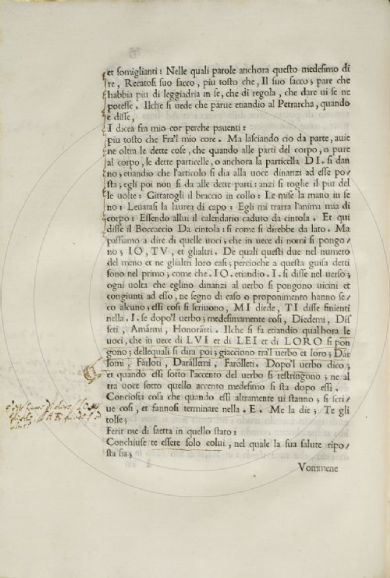 et somiglianti: Nelle quali parole anchora questo medesimo di
re, Recatosi suo sacco, piu tosto che, Il suo sacco; pare che
habbia piu di leggiadria in se, che di regola, che dare ui se ne
potesse. Ilche si uede che parue etiandio al Petrarcha, quando
e disse,
I dicea fin mio cor perche pauenti:
piu tosto che Fra'l mio core. Ma lasciando cio da parte, auie
ne oltra le dette cose, che quando alle parti del corpo, o pure
al corpo, le dette particelle, o anchora la particella DI. si dan
no; etiandio che l'articolo si dia alla uoce dinanzi ad esse po/
sta; egli poi non si da alle dette parti: anzi si toglie il piu del
le uolte: Gittatogli il braccio in collo: Le mise la mano in se
no: Leuatasi la laurea di capo: Egli mi trarra l'anima mia di
corpo: Essendo allui il calendario caduto da cintola. Et qui
disse il Boccaccio Da cintola: si come si direbbe da lato. Ma
passiamo a dire di quelle uoci, che in uece di nomi si pongo/
no; IO, TV, et glialtri. De quali questi due nel numero
del meno et ne glialtri loro casi; percioche a questa guisa detti
sono nel primo; come che .IO. etiandio .I. si disse nel uerso;
ogni uolta che eglino dinanzi al uerbo si pongono uicini et
congiunti ad esso, ne segno di caso o proponimento hanno se/
co alcuno; essi cosi si scriuono, MI diede, TI disse finienti
nella .I. se dopo'l uerbo; medesimamente cosi, Diedemi, Dis
seti, Amarmi, Honorarti. Ilche si fa etiandio qual'hora le
uoci, che in uece di LVI et di LEI et di LORO si pon
gono; dellequali si dira poi; giacciono tra'l uerbo et loro; Dar
lomi, Farloti, Darallemi, Farolleti. Dopo'l uerbo dico;
et quando essi sotto l'accento del uerbo si restringono; ne al
tra uoce sotto quello accento medesimo si sta dopo essi.
Conciosia cosa che quando essi altramente ui stanno; si scri/
ue cosi, et fannosi terminare nella .E. Me la die; Te gli
tolse;
Ferir me di saetta in quello stato:
Conchiuse te essere solo colui, nel quale la sua salute ripo/
sta sia;
Vommene